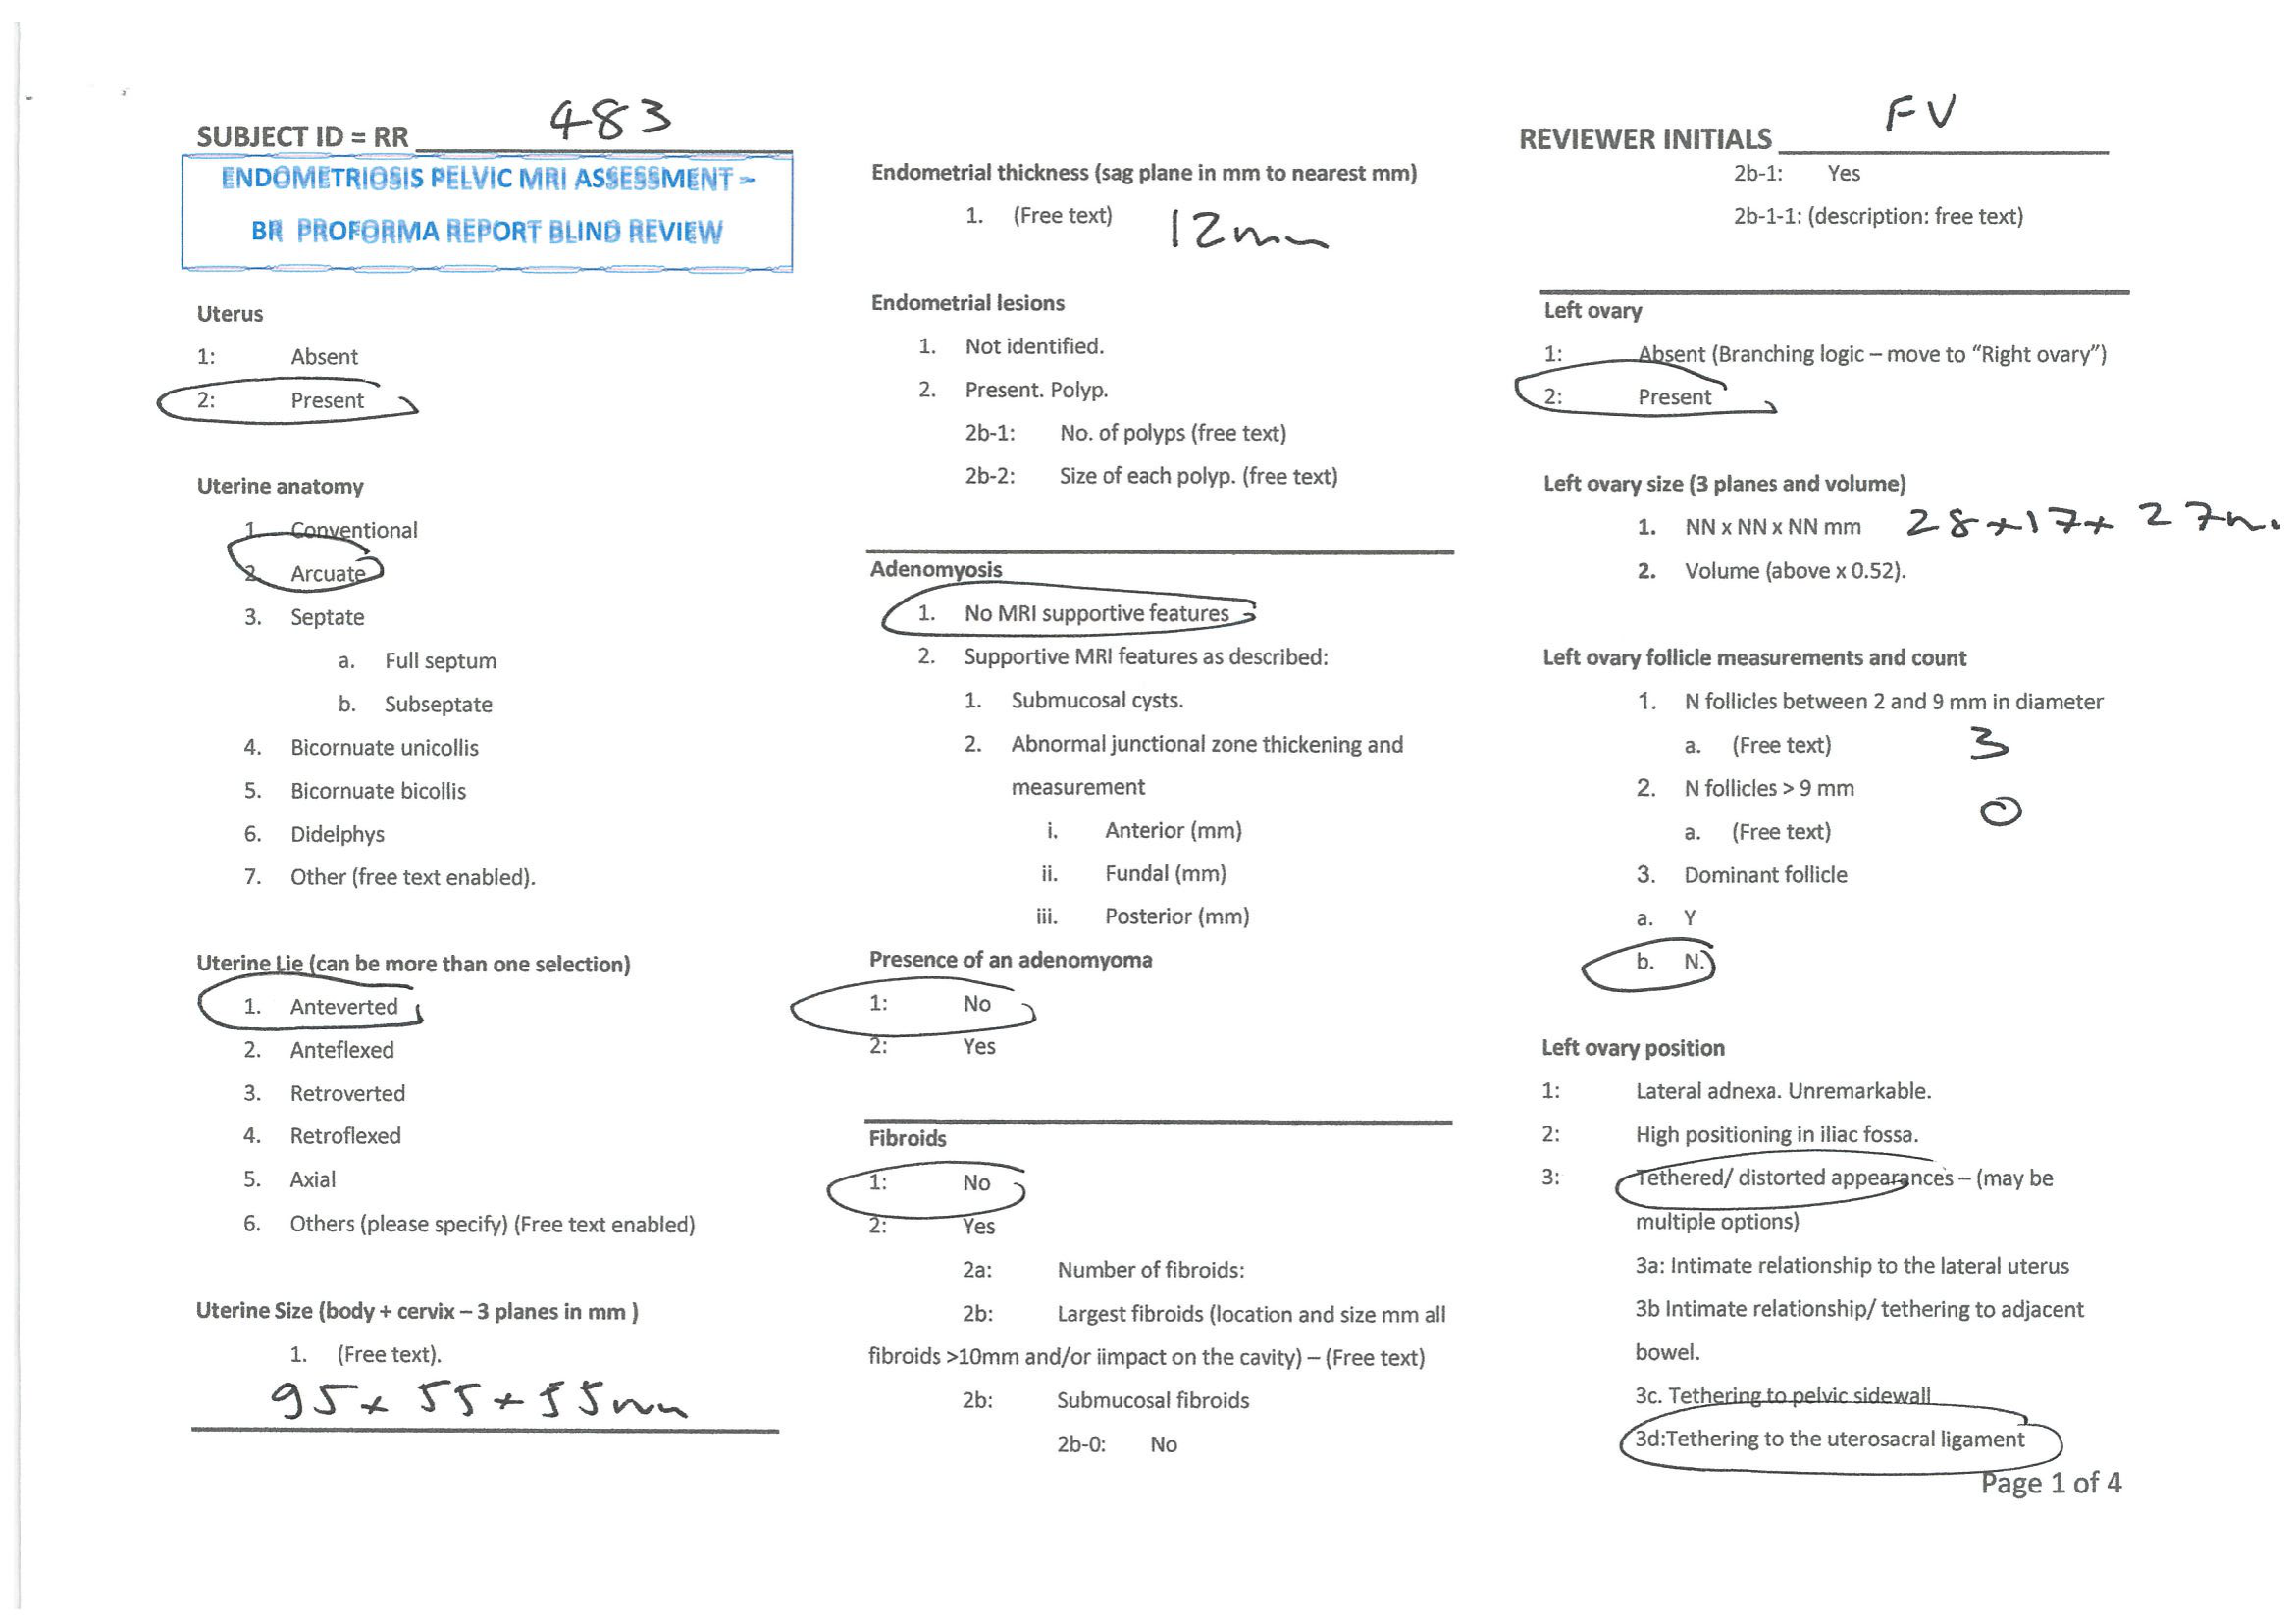 SUBJECT ID = RR 483
ENDOMETRIOSIS PELVIC MRI ASSESSMENT –
BR PROFORMA REPORT BLIND REVIEW
Uterus
1: Absent
2: Present
Uterine anatomy
1. Conventional
2. Arcuate
3. Septate
a. Full septum
b. Subseptate
4. Bicornuate unicollis
5. Bicornuate bicollis
6. Didelphys
7. Other (free text enabled).
Uterine Lie (can be more than one selection)
1. Anteverted
2. Anteflexed
3. Retroverted
4. Retroflexed
5. Axial
6. Others (please specify) (Free text enabled)
Uterine Size (body + cervix – 3 planes in mm )
1. (Free text).
95 x 55 x 55mm
Endometrial thickness (sag plane in mm to nearest mm)
1. (Free text) 12mm
Endometrial lesions
1. Not identified.
2. Present. Polyp.
2b-1: No. of polyps (free text)
2b-2: Size of each polyp. (free text)
Adenomyosis
1. No MRI supportive features
2. Supportive MRI features as described:
1. Submucosal cysts.
2. Abnormal junctional zone thickening and
measurement
i. Anterior (mm)
ii. Fundal (mm)
iii. Posterior (mm)
Presence of an adenomyoma
1: No
2: Yes
Fibroids
1: No
2: Yes
2a: Number of fibroids:
2b: Largest fibroids (location and size mm all
fibroids >10mm and/or iimpact on the cavity) – (Free text)
2b: Submucosal fibroids
2b-0: No
REVIEWER INITIALS FV
2b-1: Yes
2b-1-1: (description: free text)
Left ovary
1: Absent (Branching logic – move to “Right ovary”)
2: Present
Left ovary size (3 planes and volume)
1. NN x NN x NN mm 28 x 17 x 27m.
2. Volume (above x 0.52).
Left ovary follicle measurements and count
1. N follicles between 2 and 9 mm in diameter
a. (Free text) 3
2. N follicles > 9 mm
0
a. (Free text)
3. Dominant follicle
a. Y
b. N.
Left ovary position
1: Lateral adnexa. Unremarkable.
2: High positioning in iliac fossa.
3: Tethered/ distorted appearances – (may be
multiple options)
3a: Intimate relationship to the lateral uterus
3b Intimate relationship/ tethering to adjacent
bowel.
3c. Tethering to pelvic sidewall
3d:Tethering to the uterosacral ligament
Page 1 of 4